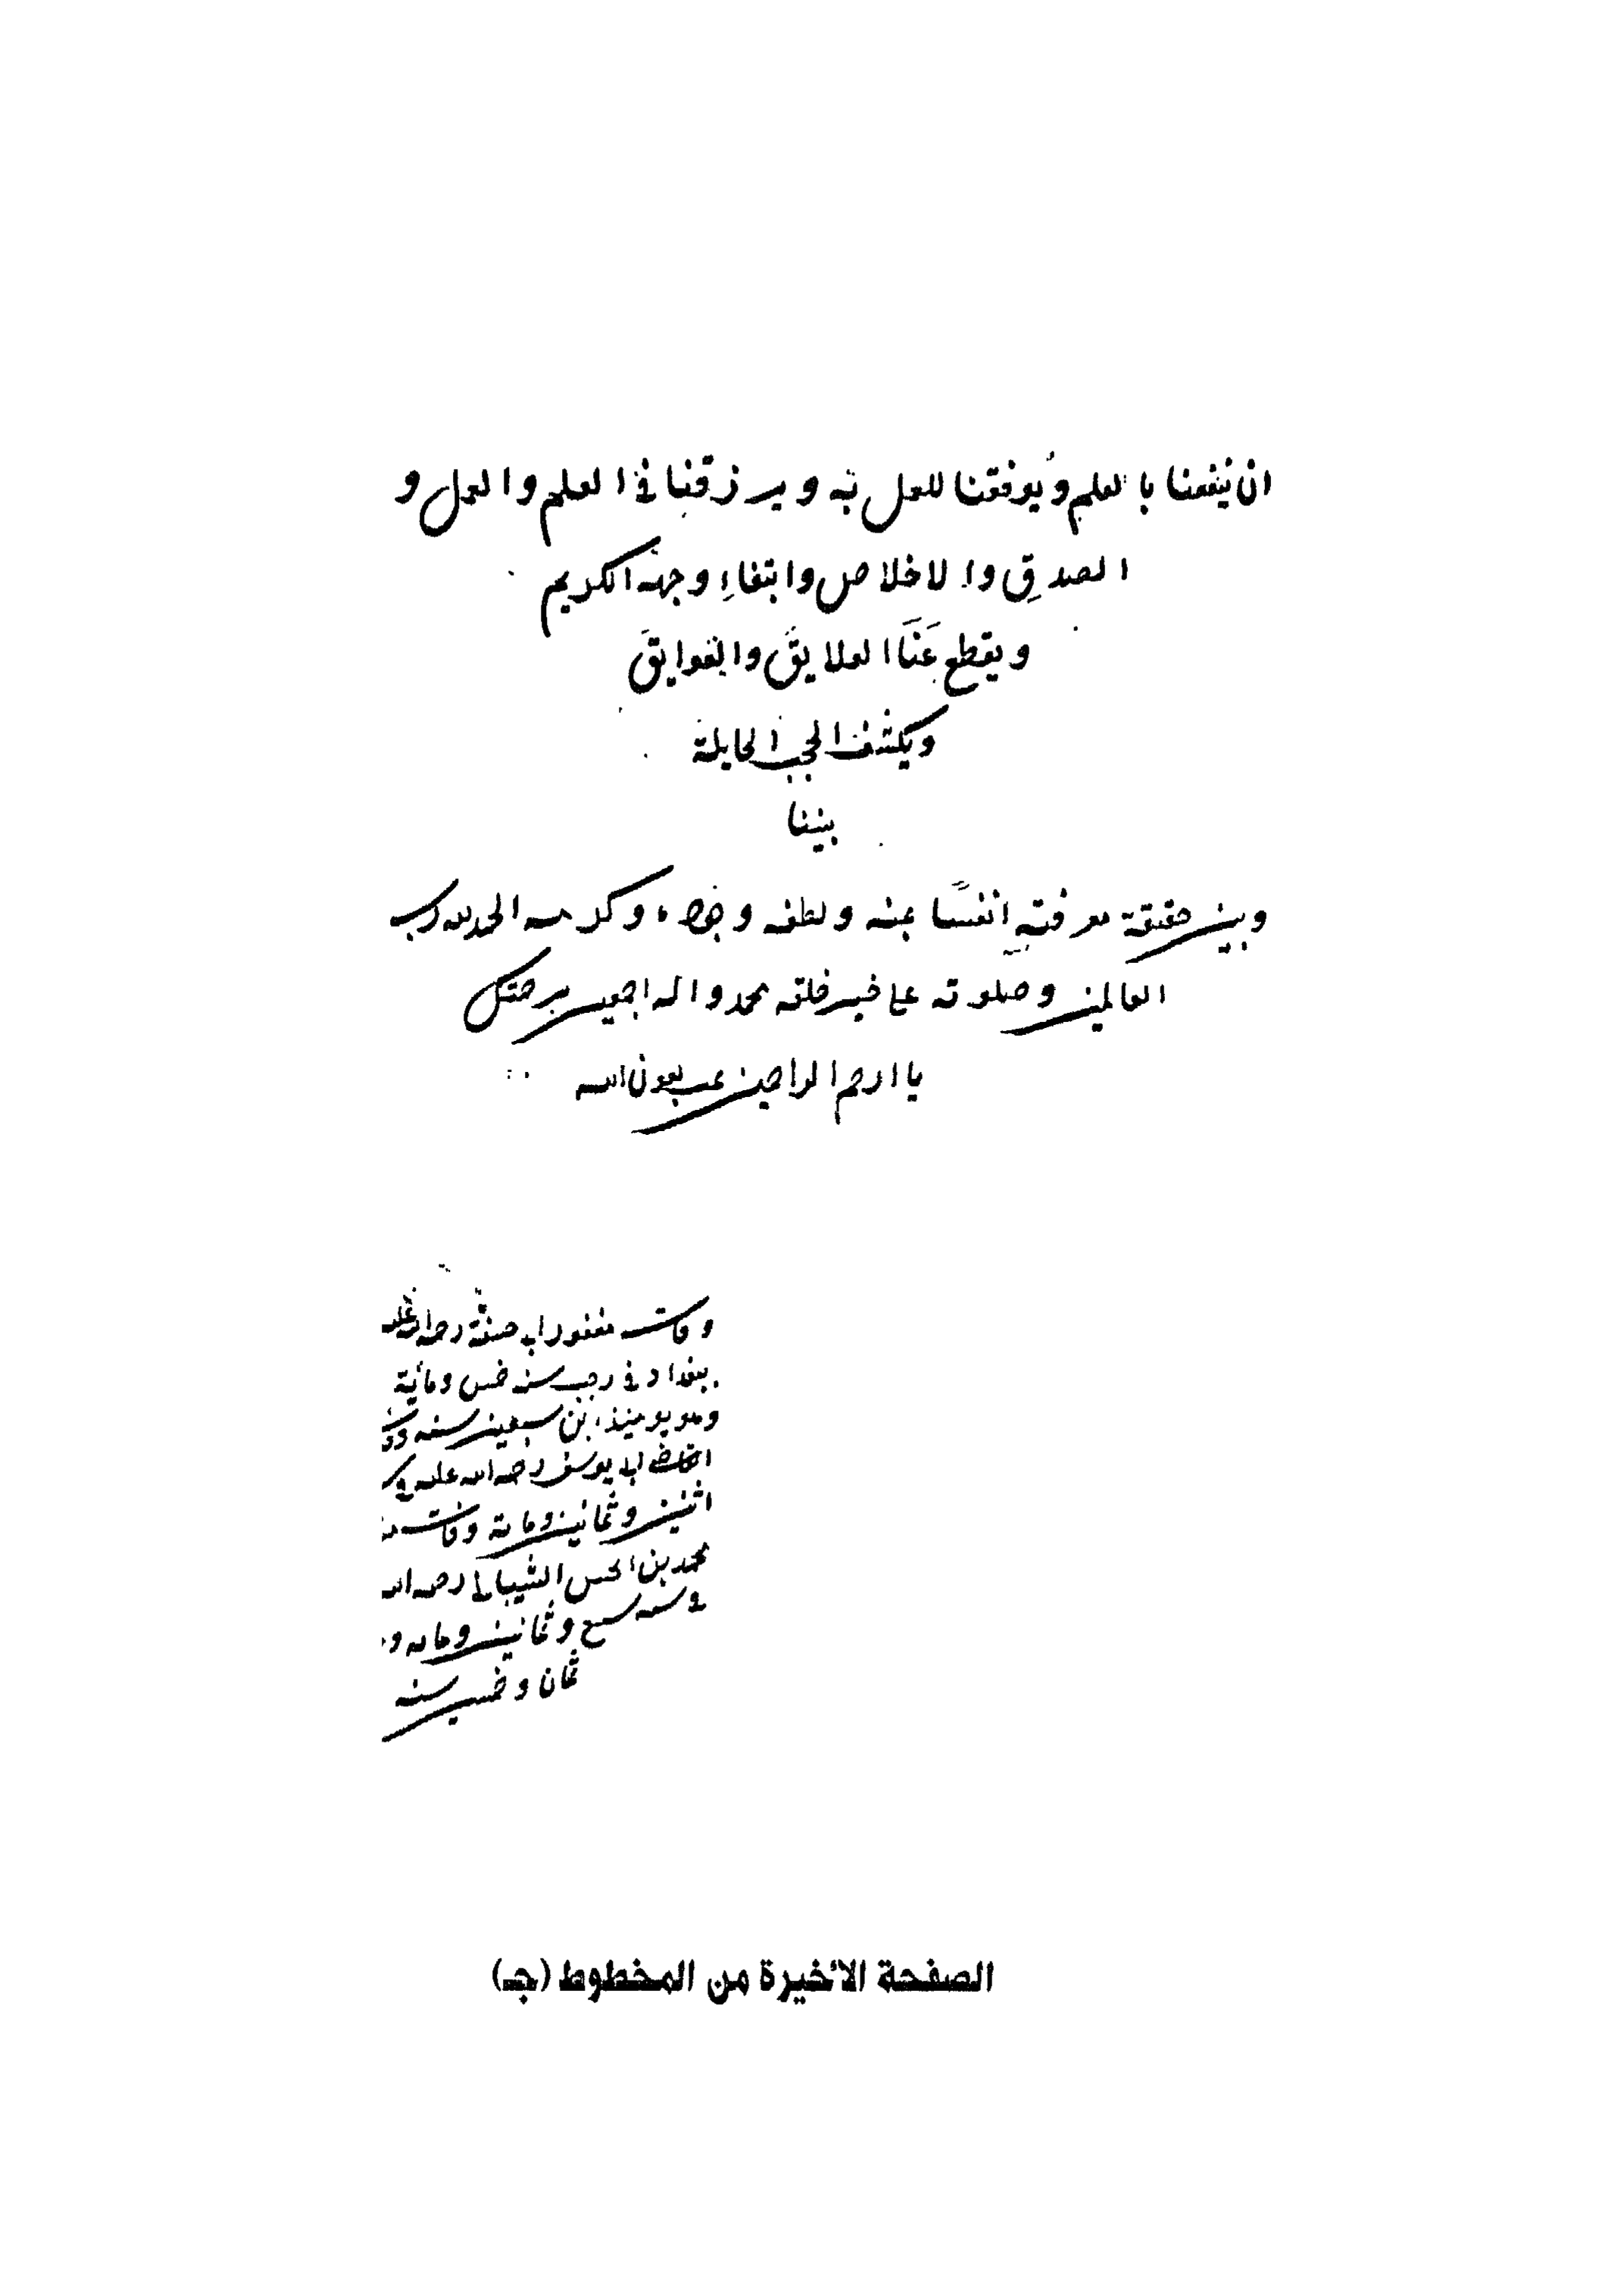 ان ينفعنا بالعلم و يوفقنا للعمل به و يرزقنا في العلم والعمل و
الصدق والاخلاص وابتغاء وجهه الكريم
ويقطع عنا العلايق والعوايق
ويكشف الحجب الحايلة
بيننا
وبين حقيقة معرفته انفسنا بمنه ولطفه وجوده وكرمه الحمد لله رب
العالمين وصلوته على خير خلقه محمد واله اجمعين برحمتك
يا ارحم الراحمين بعون الله
وفات ابي حنيفة رحمة الله عليه
ببغداد في رجب سنه خمس ومأية
وهو يوميذ ابن سبعين سنه
القاضي ابي يوسف رحمه الله عليه في
اثنين وثمانين وماية وفات
محمد بن الحسن الشيباني رحمه الله
في سنه سبع وثمانين ومايه
ثمان وخمسين سنه
الصفحة الأخيرة من المخطوط (جـ)